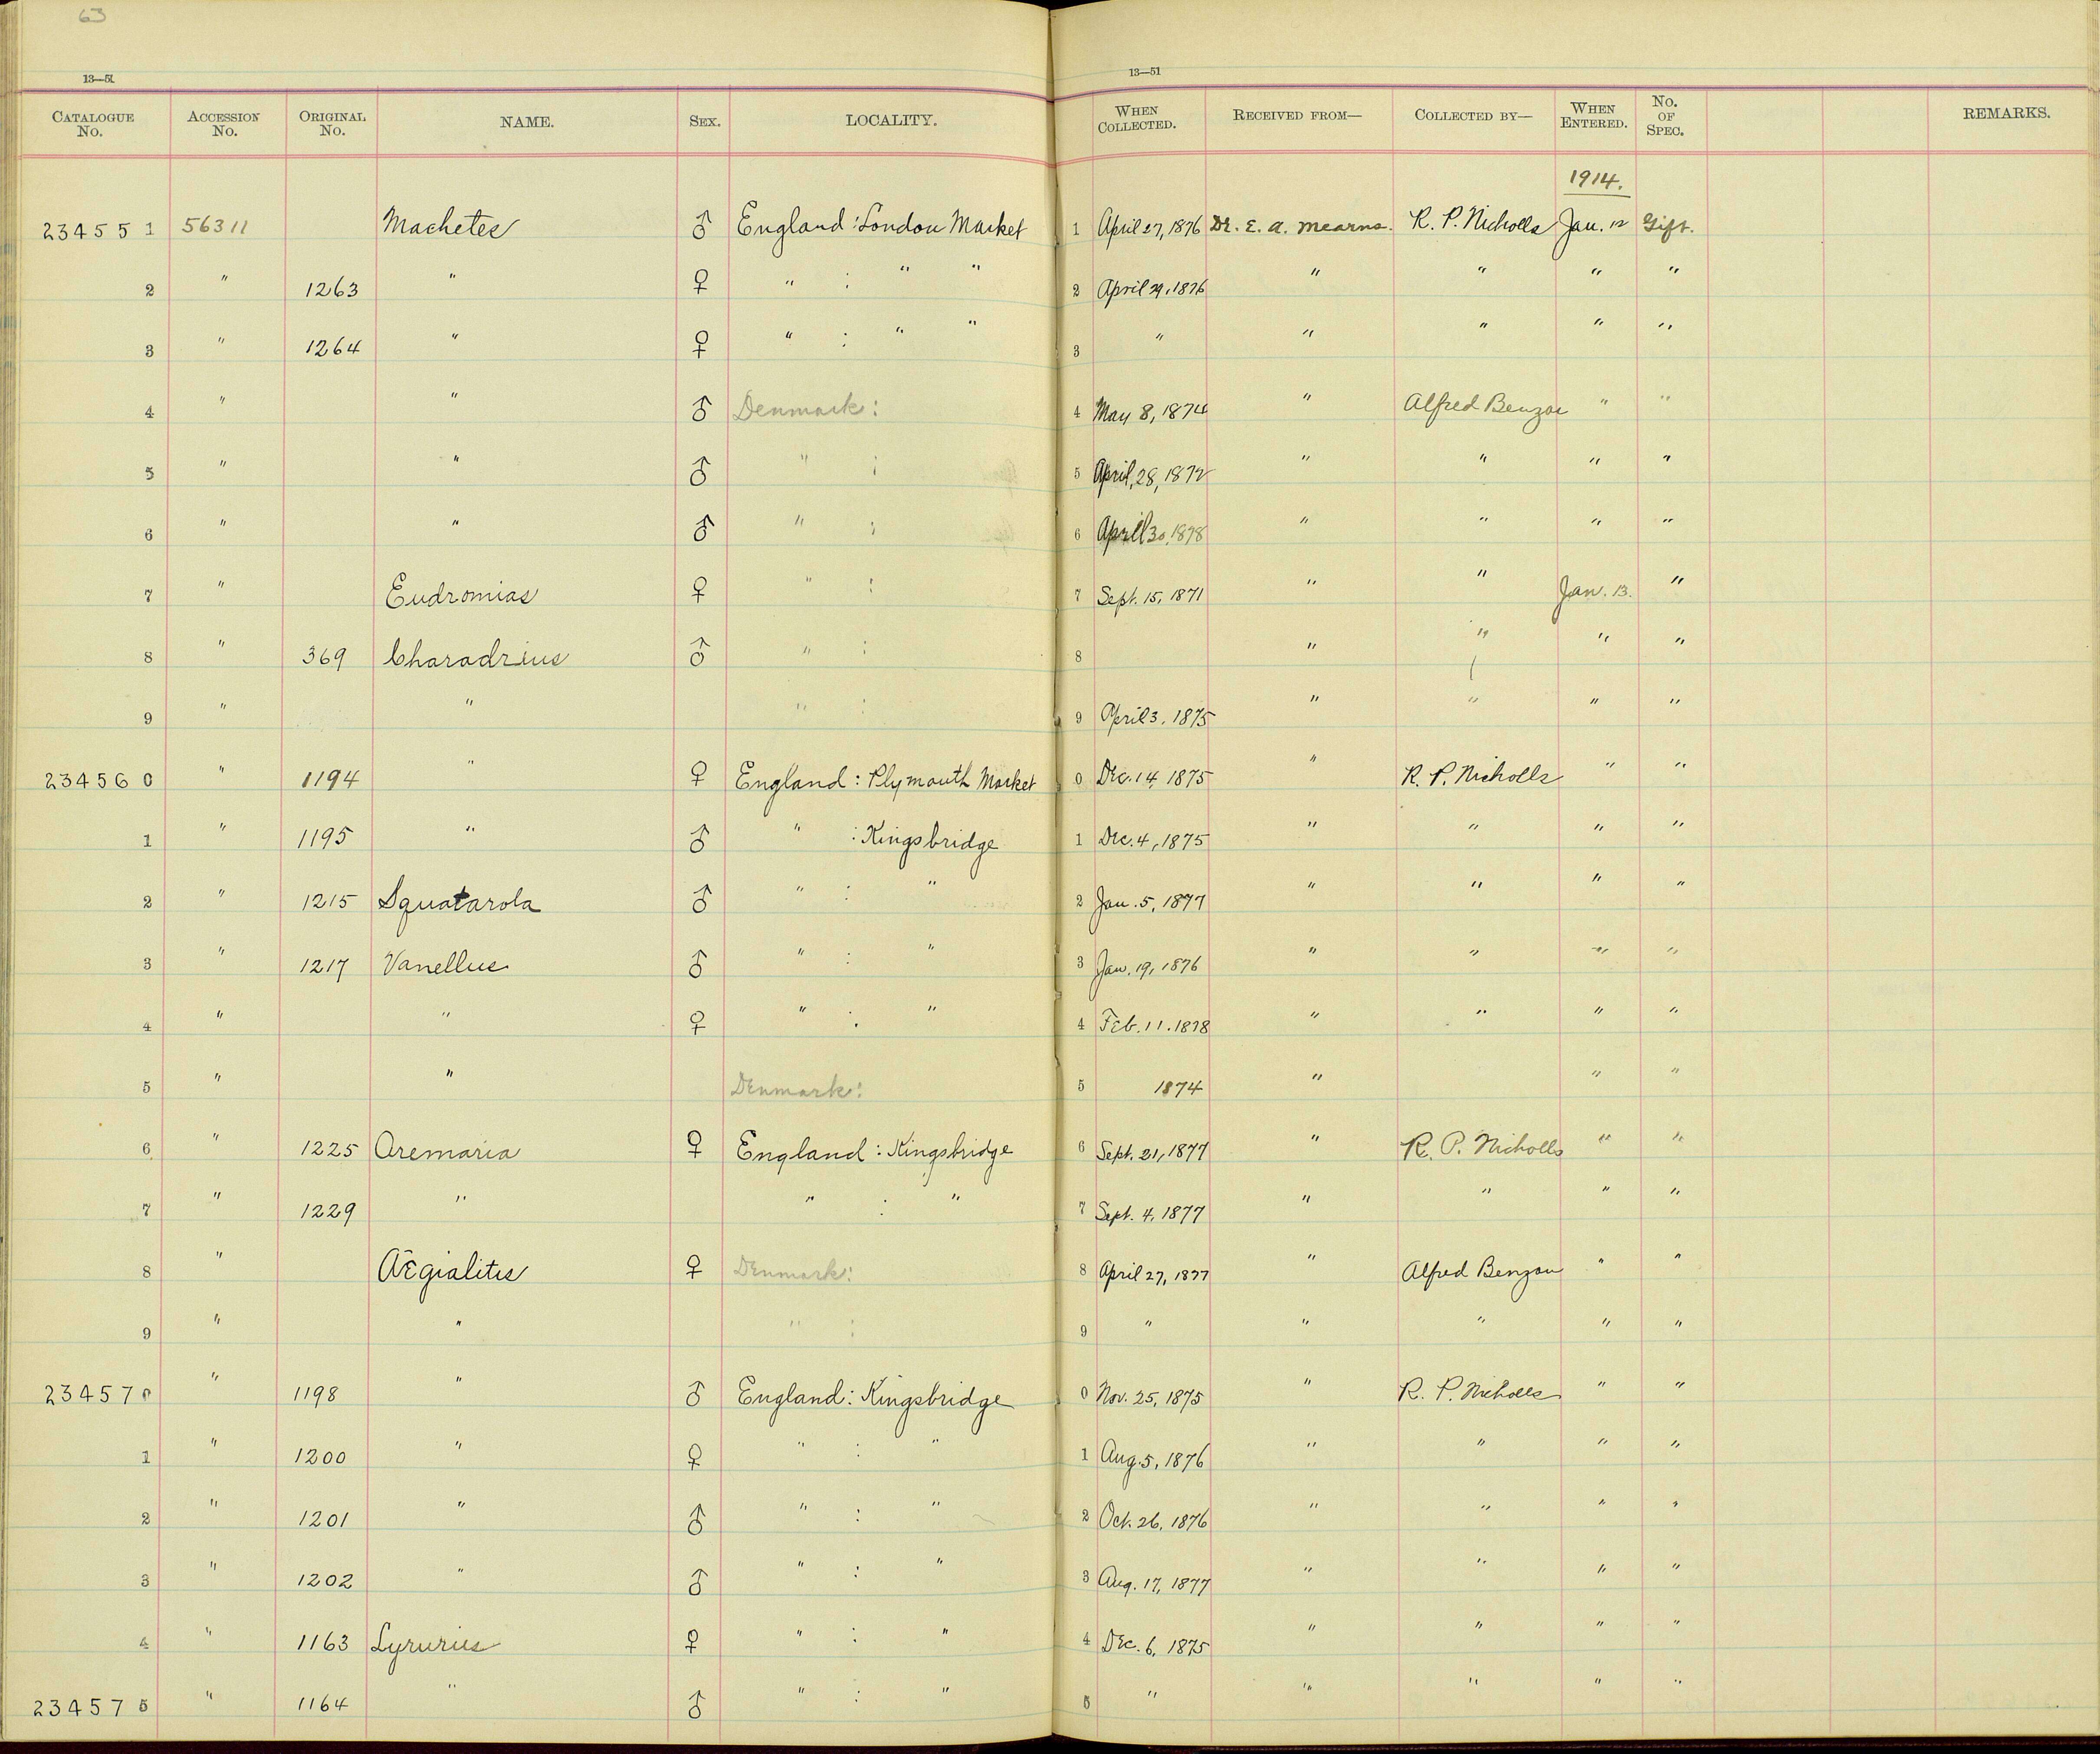 63
13—51 13—51
CATALOGUE No. ACCESSION No. ORIGINAL No. NAME. SEX. LOCALITY. WHEN COLLECTED. RECEIVED FROM— COLLECTED BY— WHEN ENTERED. No. OF SPEC. REMARKS.
1914.
234551 56311 Machetes ♂ England : London Market 1 April 27, 1876 Dr. E. A. Mearns. R. P. Nicholls Jan. 12 Gift.
2 " 1263 " ♀ " : " " 2 April 29, 1876 " " " "
3 " 1264 " ♀ " : " " 3 " " " " "
4 " " ♂ Denmark : 4 May 8, 1874 " Alfred Benzon " "
5 " " ♂ " : 5 April, 28, 1872 " " " "
6 " " ♂ " : 6 April 30, 1878 " " " "
7 " Eudromias ♀ " : 7 Sept. 15, 1871 " " Jan. 13. "
8 " 369 Charadrius ♂ " : 8 " " " "
9 " " " : 9 April 3, 1875 " " " "
234560 " 1194 " ♀ England : Plymouth Market 0 Dec. 14, 1875 " R. P. Nicholls " "
1 " 1195 " ♂ " : Kingsbridge 1 Dec. 4, 1875 " " " "
2 " 1215 Squatarola ♂ " : " 2 Jan. 5, 1877 " " " "
3 " 1217 Vanellus ♂ " : " 3 Jan. 19, 1876 " " " "
4 " " ♀ " : " 4 Feb. 11. 1878 " " " "
5 " " Denmark : 5 1874 " " "
6 " 1225 Aremaria ♀ England : Kingsbridge 6 Sept. 21, 1877 " R. P. Nicholls " "
7 " 1229 " " : " 7 Sept. 4, 1877 " " " "
8 " Ægialitis ♀ Denmark : 8 April 27, 1877 " Alfred Benzon " "
9 " " " : 9 " " " " "
234570 " 1198 " ♂ England : Kingsbridge 0 Nov. 25, 1875 " R. P. Nicholls " "
1 " 1200 " ♀ " : " 1 Aug. 5, 1876 " " " "
2 " 1201 " ♂ " : " 2 Oct. 26, 1876 " " " "
3 " 1202 " ♂ " : " 3 Aug. 17, 1877 " " " "
4 " 1163 Lyrurus ♀ " : " 4 Dec. 6, 1875 " " " "
234575 " 1164 " ♂ " : " 5 " " " " "